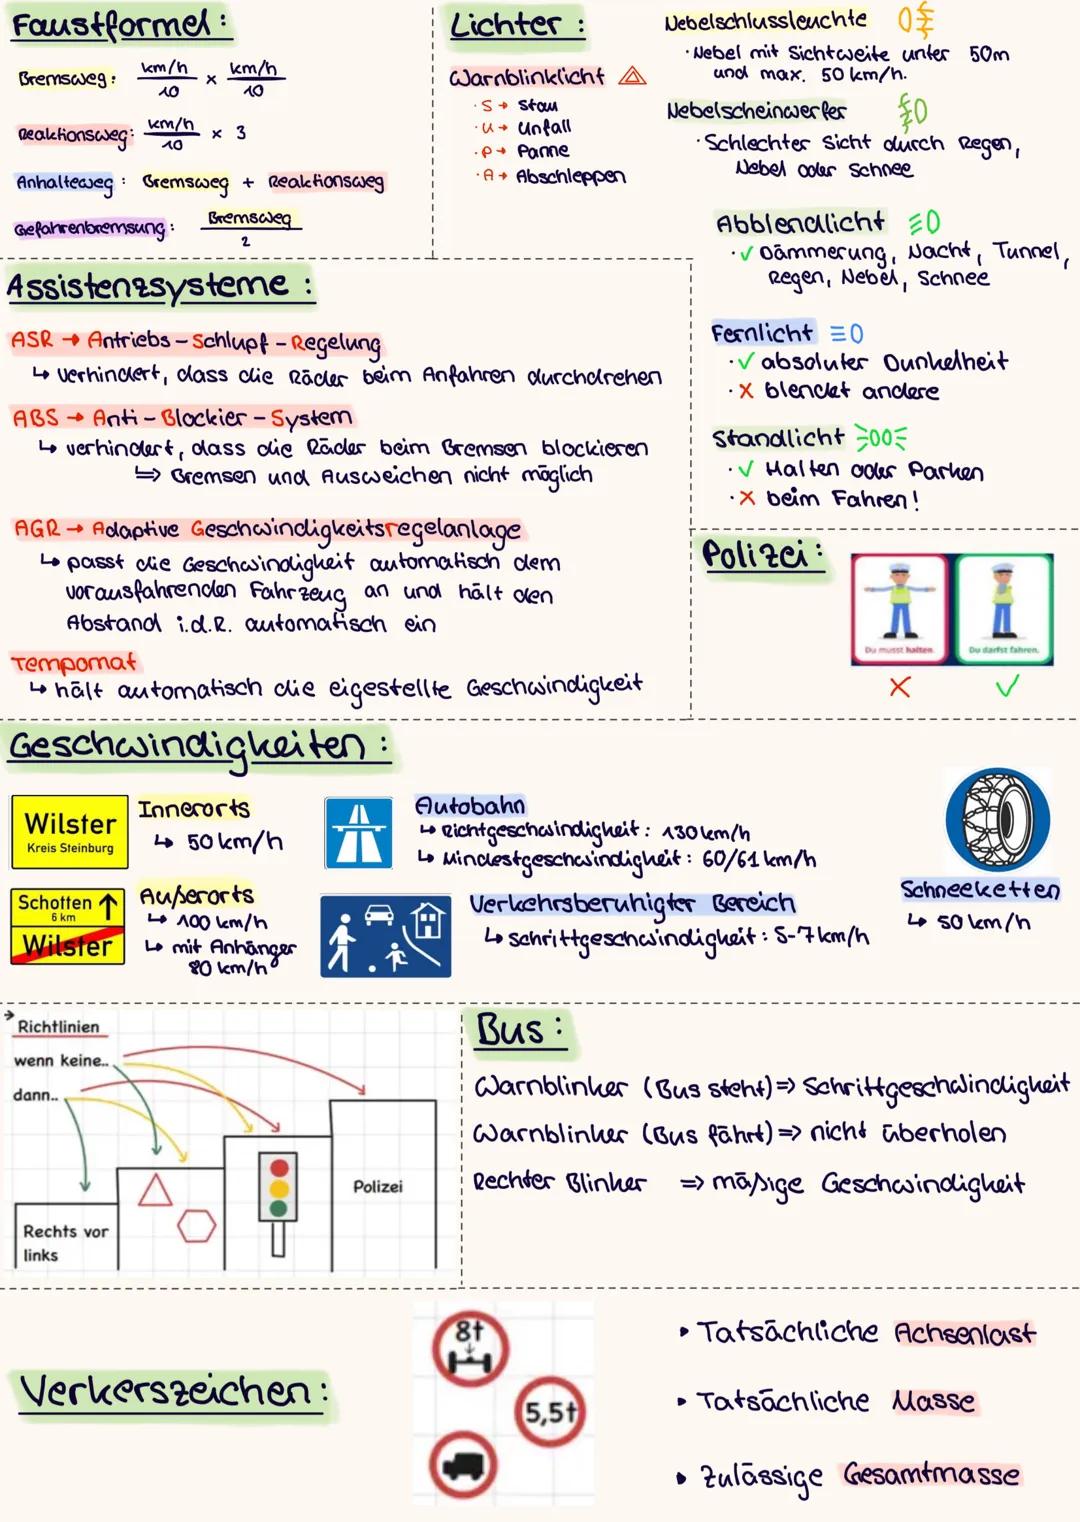 Faustformel:
Bremsweg: km/h / 10 x km/h / 10
Reaktionsweg: km/h / 10 x 3
Anhalteweg: Bremsweg + Reaktionsweg
Gefahrenbremsung: Bremsweg / 2
Lichter:
Warnblinklicht
· S → Stau
· U → Unfall
· P → Panne
· A → Abschleppen
Nebelschlussleuchte
· Nebel mit Sichtweite unter 50m
und max. 50 km/h.
Nebelscheinwerfer
· Schlechter Sicht durch Regen,
Nebel oder Schnee
Abblendlicht
· ✓ Dämmerung, Nacht, Tunnel,
Regen, Nebel, Schnee
Fernlicht
· ✓ absoluter Dunkelheit
· X blendet andere
Standlicht
· ✓ Halten oder Parken
· X beim Fahren!
Assistenzsysteme:
ASR → Antriebs-Schlupf-Regelung
↳ verhindert, dass die Räder beim Anfahren durchdrehen
ABS → Anti-Blockier-System
↳ verhindert, dass die Räder beim Bremsen blockieren
⇒ Bremsen und Ausweichen nicht möglich
AGR → Adaptive Geschwindigkeitsregelanlage
↳ passt die Geschwindigkeit automatisch dem
vorausfahrenden Fahrzeug an und hält den
Abstand i.d.R. automatisch ein
Tempomat
↳ hält automatisch die eigestellte Geschwindigkeit
Polizei:
Du musst halten.
Du darfst fahren.
X ✓
Geschwindigkeiten:
Wilster
Kreis Steinburg
Innerorts
↳ 50 km/h
Schotten ↑
6 km
Wilster
Außerorts
↳ 100 km/h
↳ mit Anhänger
80 km/h
Autobahn
↳ Richtgeschwindigkeit: 130 km/h
↳ Mindestgeschwindigkeit: 60/61 km/h
Verkehrsberuhigter Bereich
↳ Schrittgeschwindigkeit: 5-7 km/h
Schneeketten
↳ 50 km/h
→
Richtlinien
wenn keine..
dann..
Rechts vor
links
Polizei
Bus:
Warnblinker (Bus steht) ⇒ Schrittgeschwindigkeit
Warnblinker (Bus fährt) ⇒ nicht überholen
Rechter Blinker ⇒ mäßige Geschwindigkeit
Verkerszeichen:
8t
5,5t
• Tatsächliche Achsenlast
• Tatsächliche Masse
• Zulässige Gesamtmasse